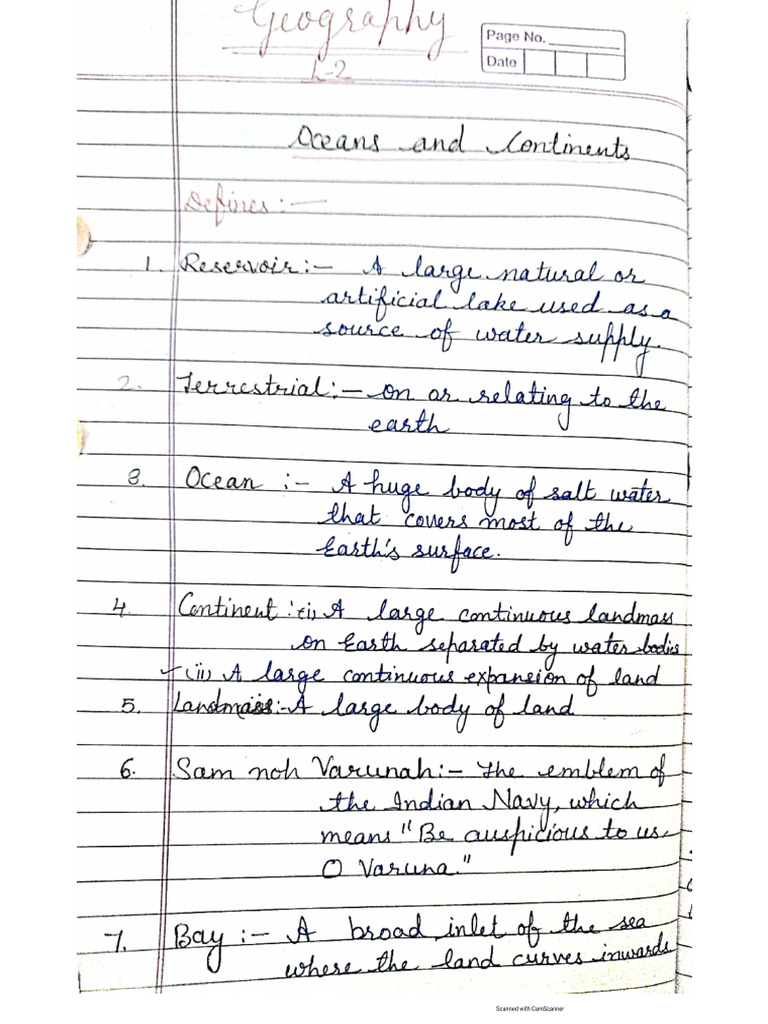 Geography
Page No.
Date
L-2
Oceans and Continents
Defines :-
1. Reservoir :- A large natural or
artificial lake used as a
source of water supply.
2. Terrestrial :- on or relating to the
earth
3. Ocean :- A huge body of salt water
that covers most of the
Earth's surface.
4 Continent : (i) A large continuous landmass
on Earth separated by water bodies
(ii) A large continuous expansion of land
5. Landmass :- A large body of land
6. Sam noh Varunah :- The emblem of
the Indian Navy, which
means "Be auspicious to us
O Varuna."
7. Bay :- A broad inlet of the sea
where the land curves inwards
Scanned with CamScanner